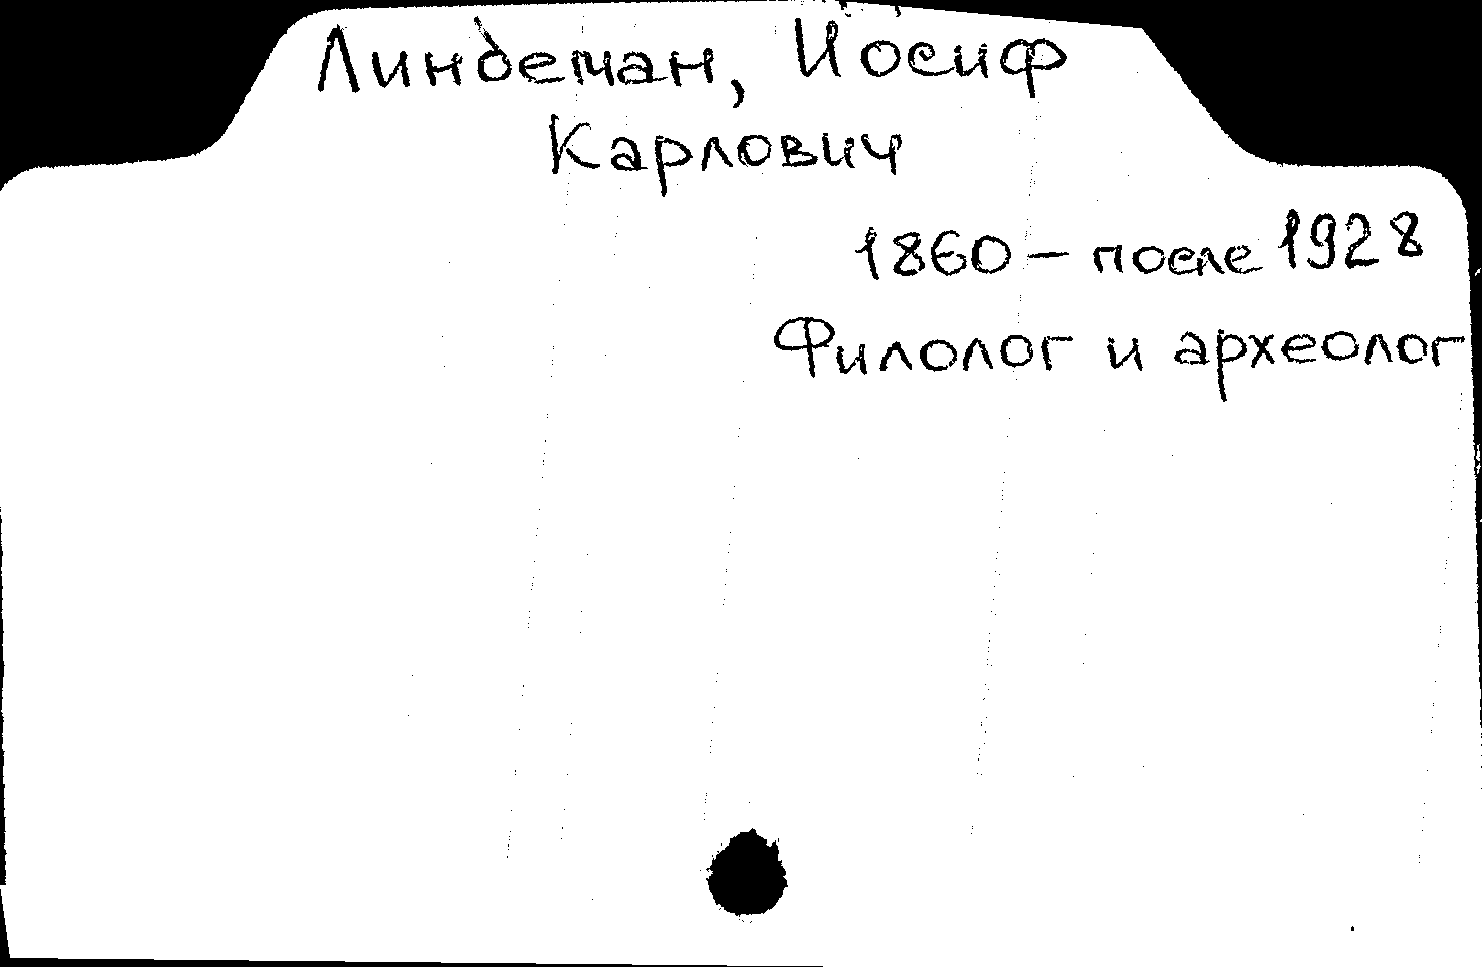 Линдеман, Иосиф
Карлович
1860 – после 1928
Филолог и археолог